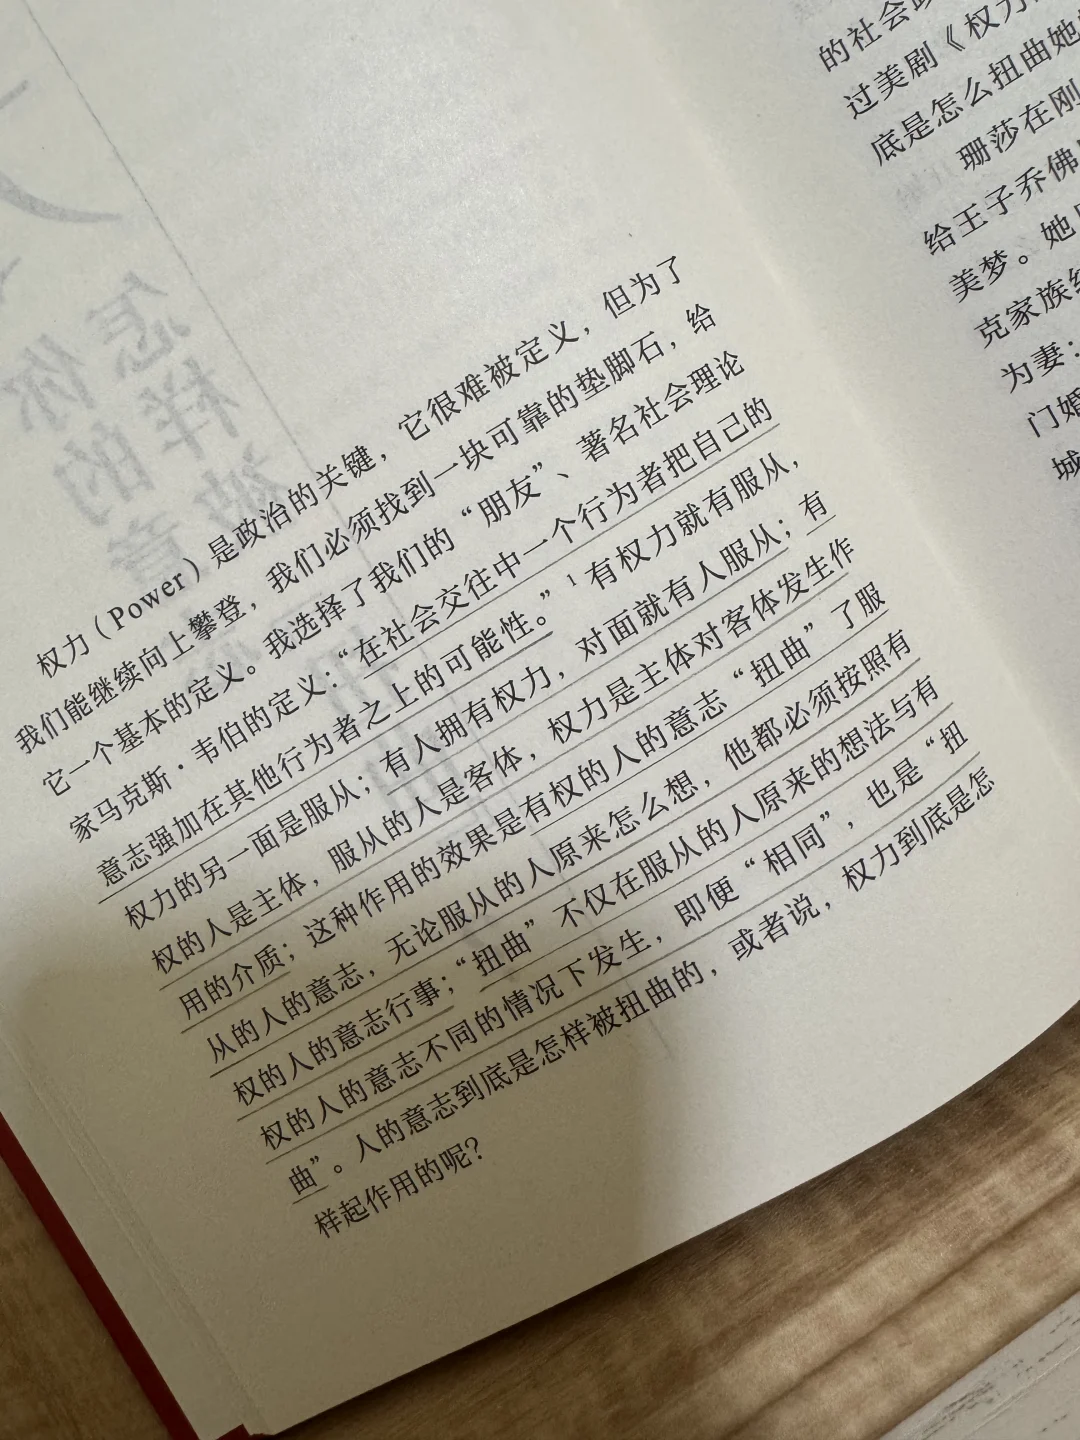 权力（Power）是政治的关键，它很难被定义，但为了
我们能继续向上攀登，我们必须找到一块可靠的垫脚石，给
它一个基本的定义。我选择了我们的“朋友”、著名社会理论
家马克斯·韦伯的定义：“在社会交往中一个行为者把自己的
意志强加在其他行为者之上的可能性。”1有权力就有服从，
权力的另一面是服从；有人拥有权力，对面就有人服从；有
权的人是主体，服从的人是客体，权力是主体对客体发生作
用的介质；这种作用的效果是有权的人的意志“扭曲”了服
从的人的意志，无论服从的人原来怎么想，他都必须按照有
权的人的意志行事；“扭曲”不仅在服从的人原来的想法与有
权的人的意志不同的情况下发生，即便“相同”，也是“扭
曲”。人的意志到底是怎样被扭曲的，或者说，权力到底是怎
样起作用的呢？
的社会
过美剧《权力
底是怎么扭曲她
珊莎在刚
给王子乔佛
美梦。她
克家族
为妻：
门婚
城